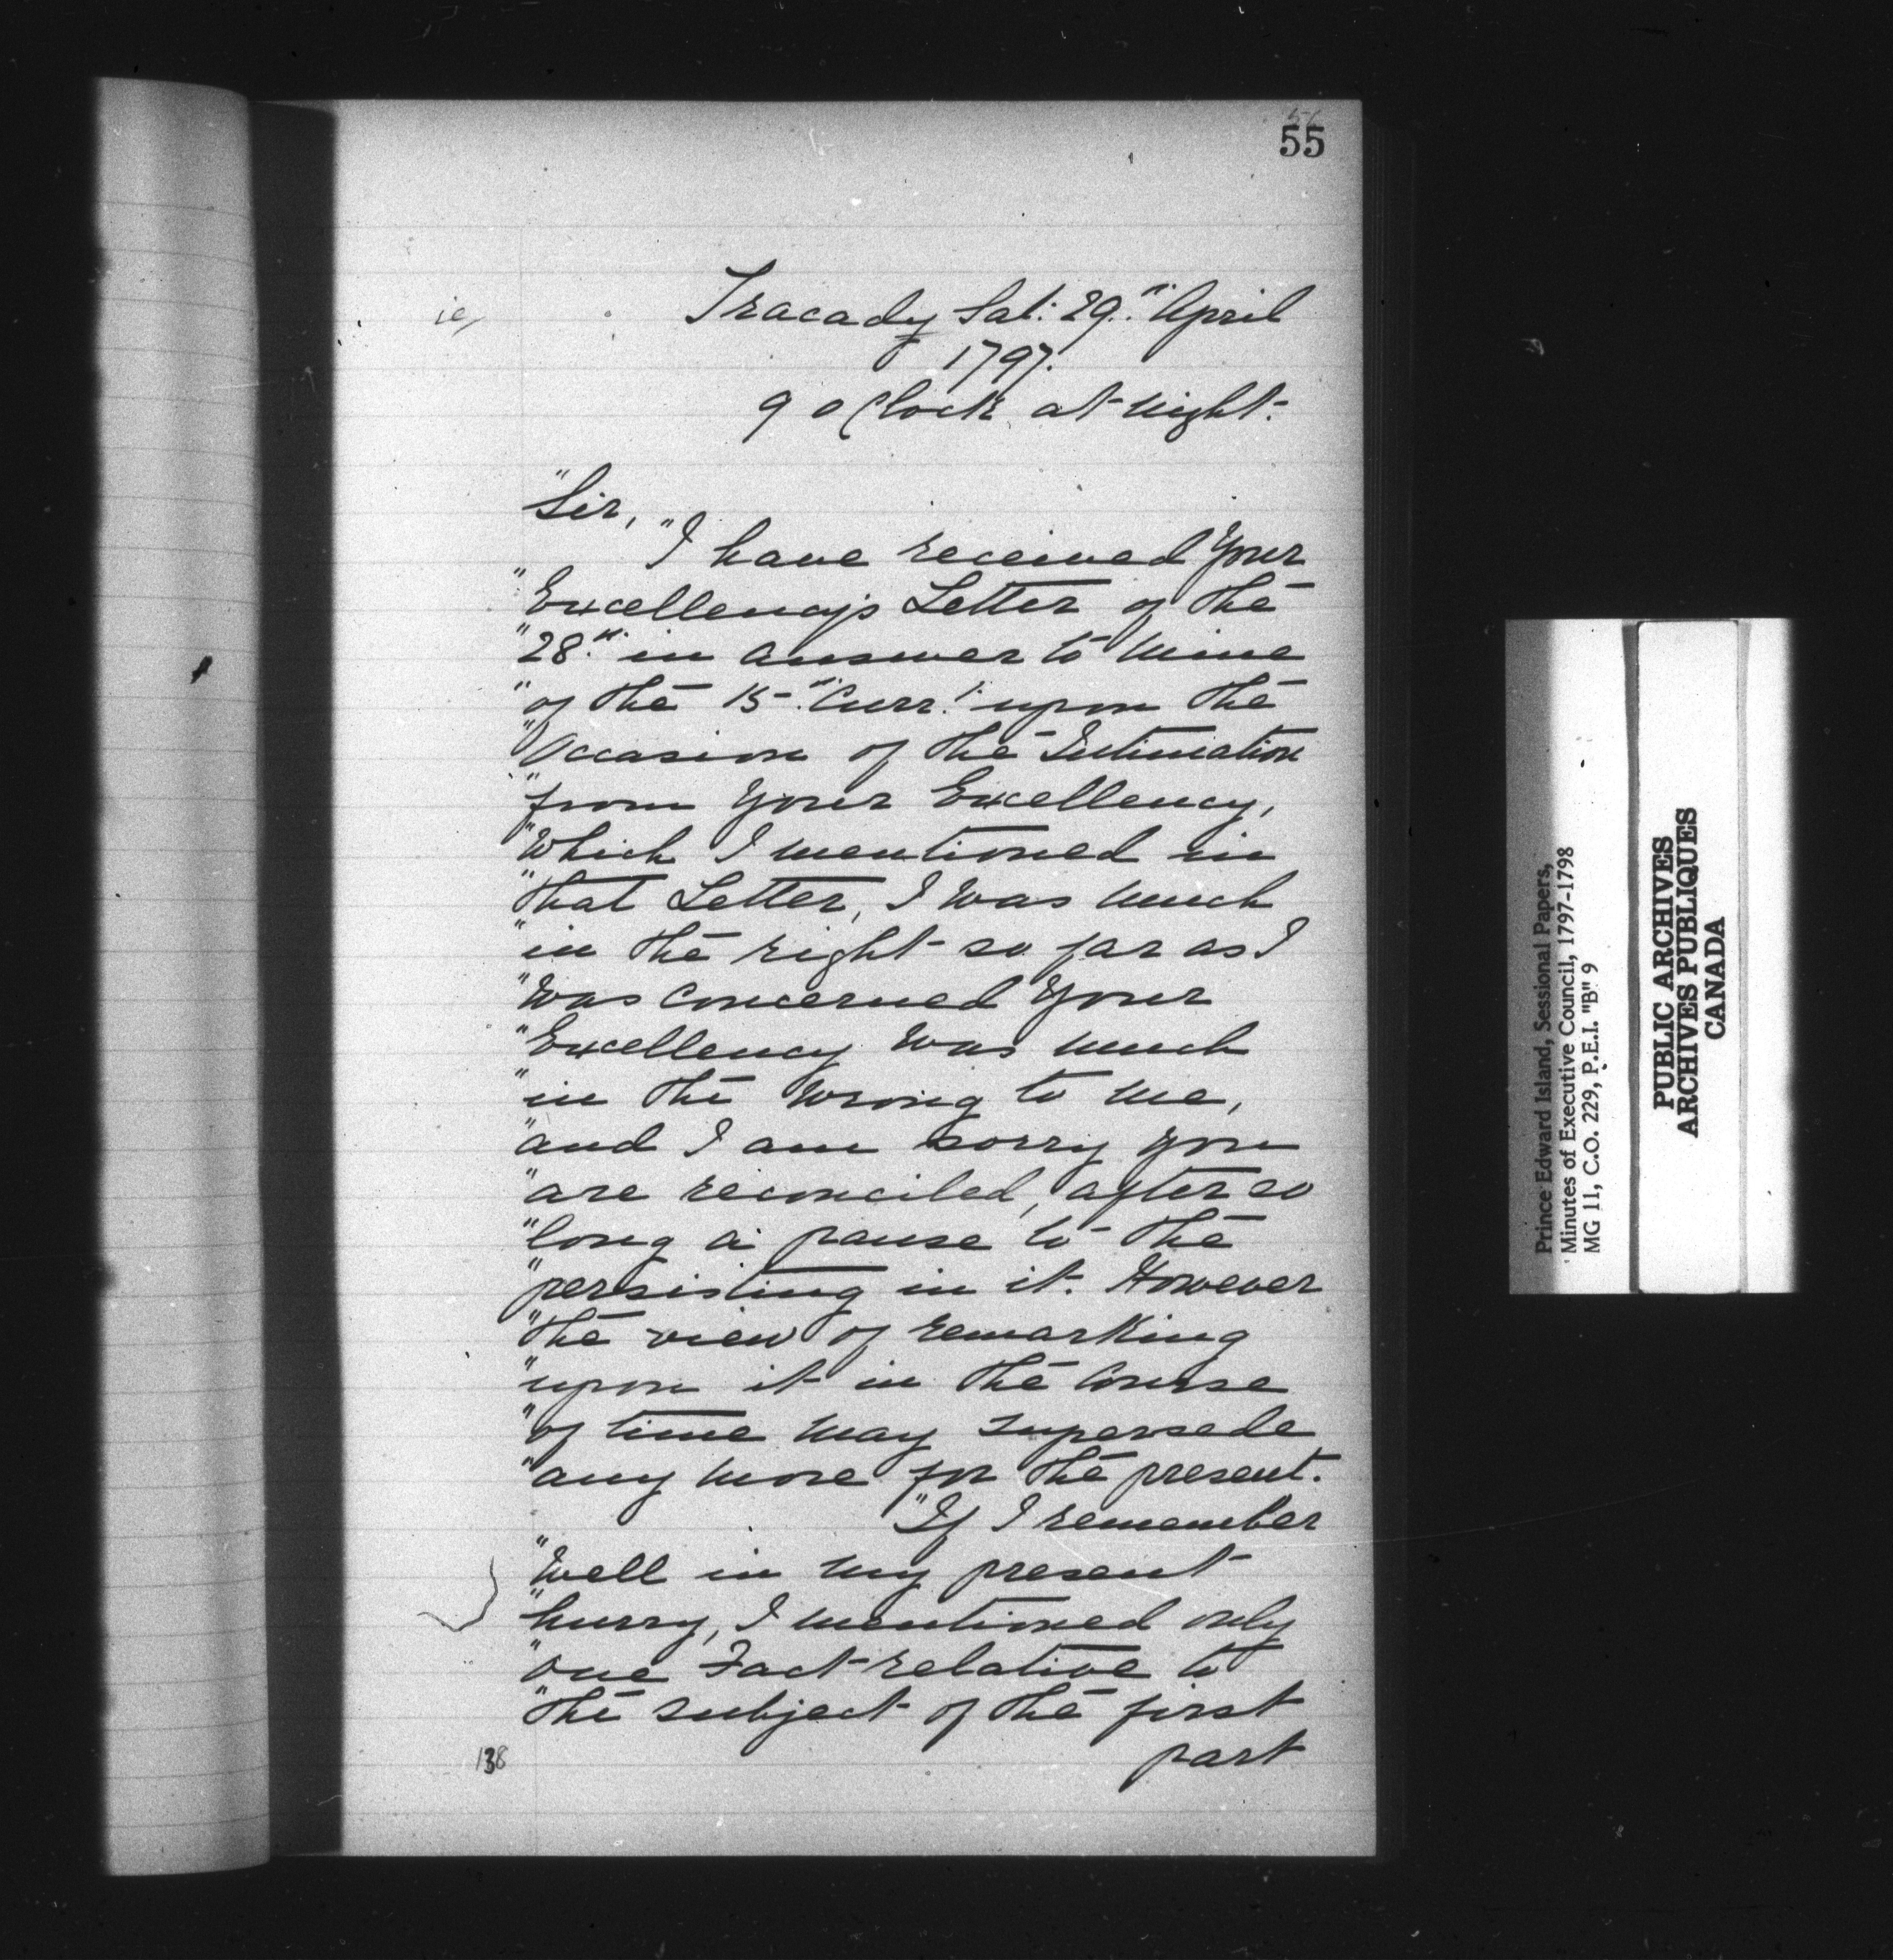 55
Tracady Sat: 29.th April
1797.
9 oClock at Night.
"Sir,
"I have received Your
"Excellency's Letter of the
"28.th in answer to Mine
"of the 15.th Curr.t upon the
"Occasion of the Intimation
"from Your Excellency,
"Which I mentioned in
"that Letter, I Was Much
"in the right so far as I
"Was Concerned Your
"Excellency Was Much
"in the Wrong to Me,
"and I am sorry you
"are reconciled, after so
"long a pause to the
"persisting in it. However
"the view of remarking
"upon it in the Course
"of time May supersede
"any More for the present.
"If I remember
"Well in My present
"hurry, I Mentioned only
"one Fact relative to
"the subject of the first
part
138
Prince Edward Island, Sessional Papers,
Minutes of Executive Council, 1797-1798
MG 11, C.O. 229, P.E.I. "B" 9
PUBLIC ARCHIVES
ARCHIVES PUBLIQUES
CANADA